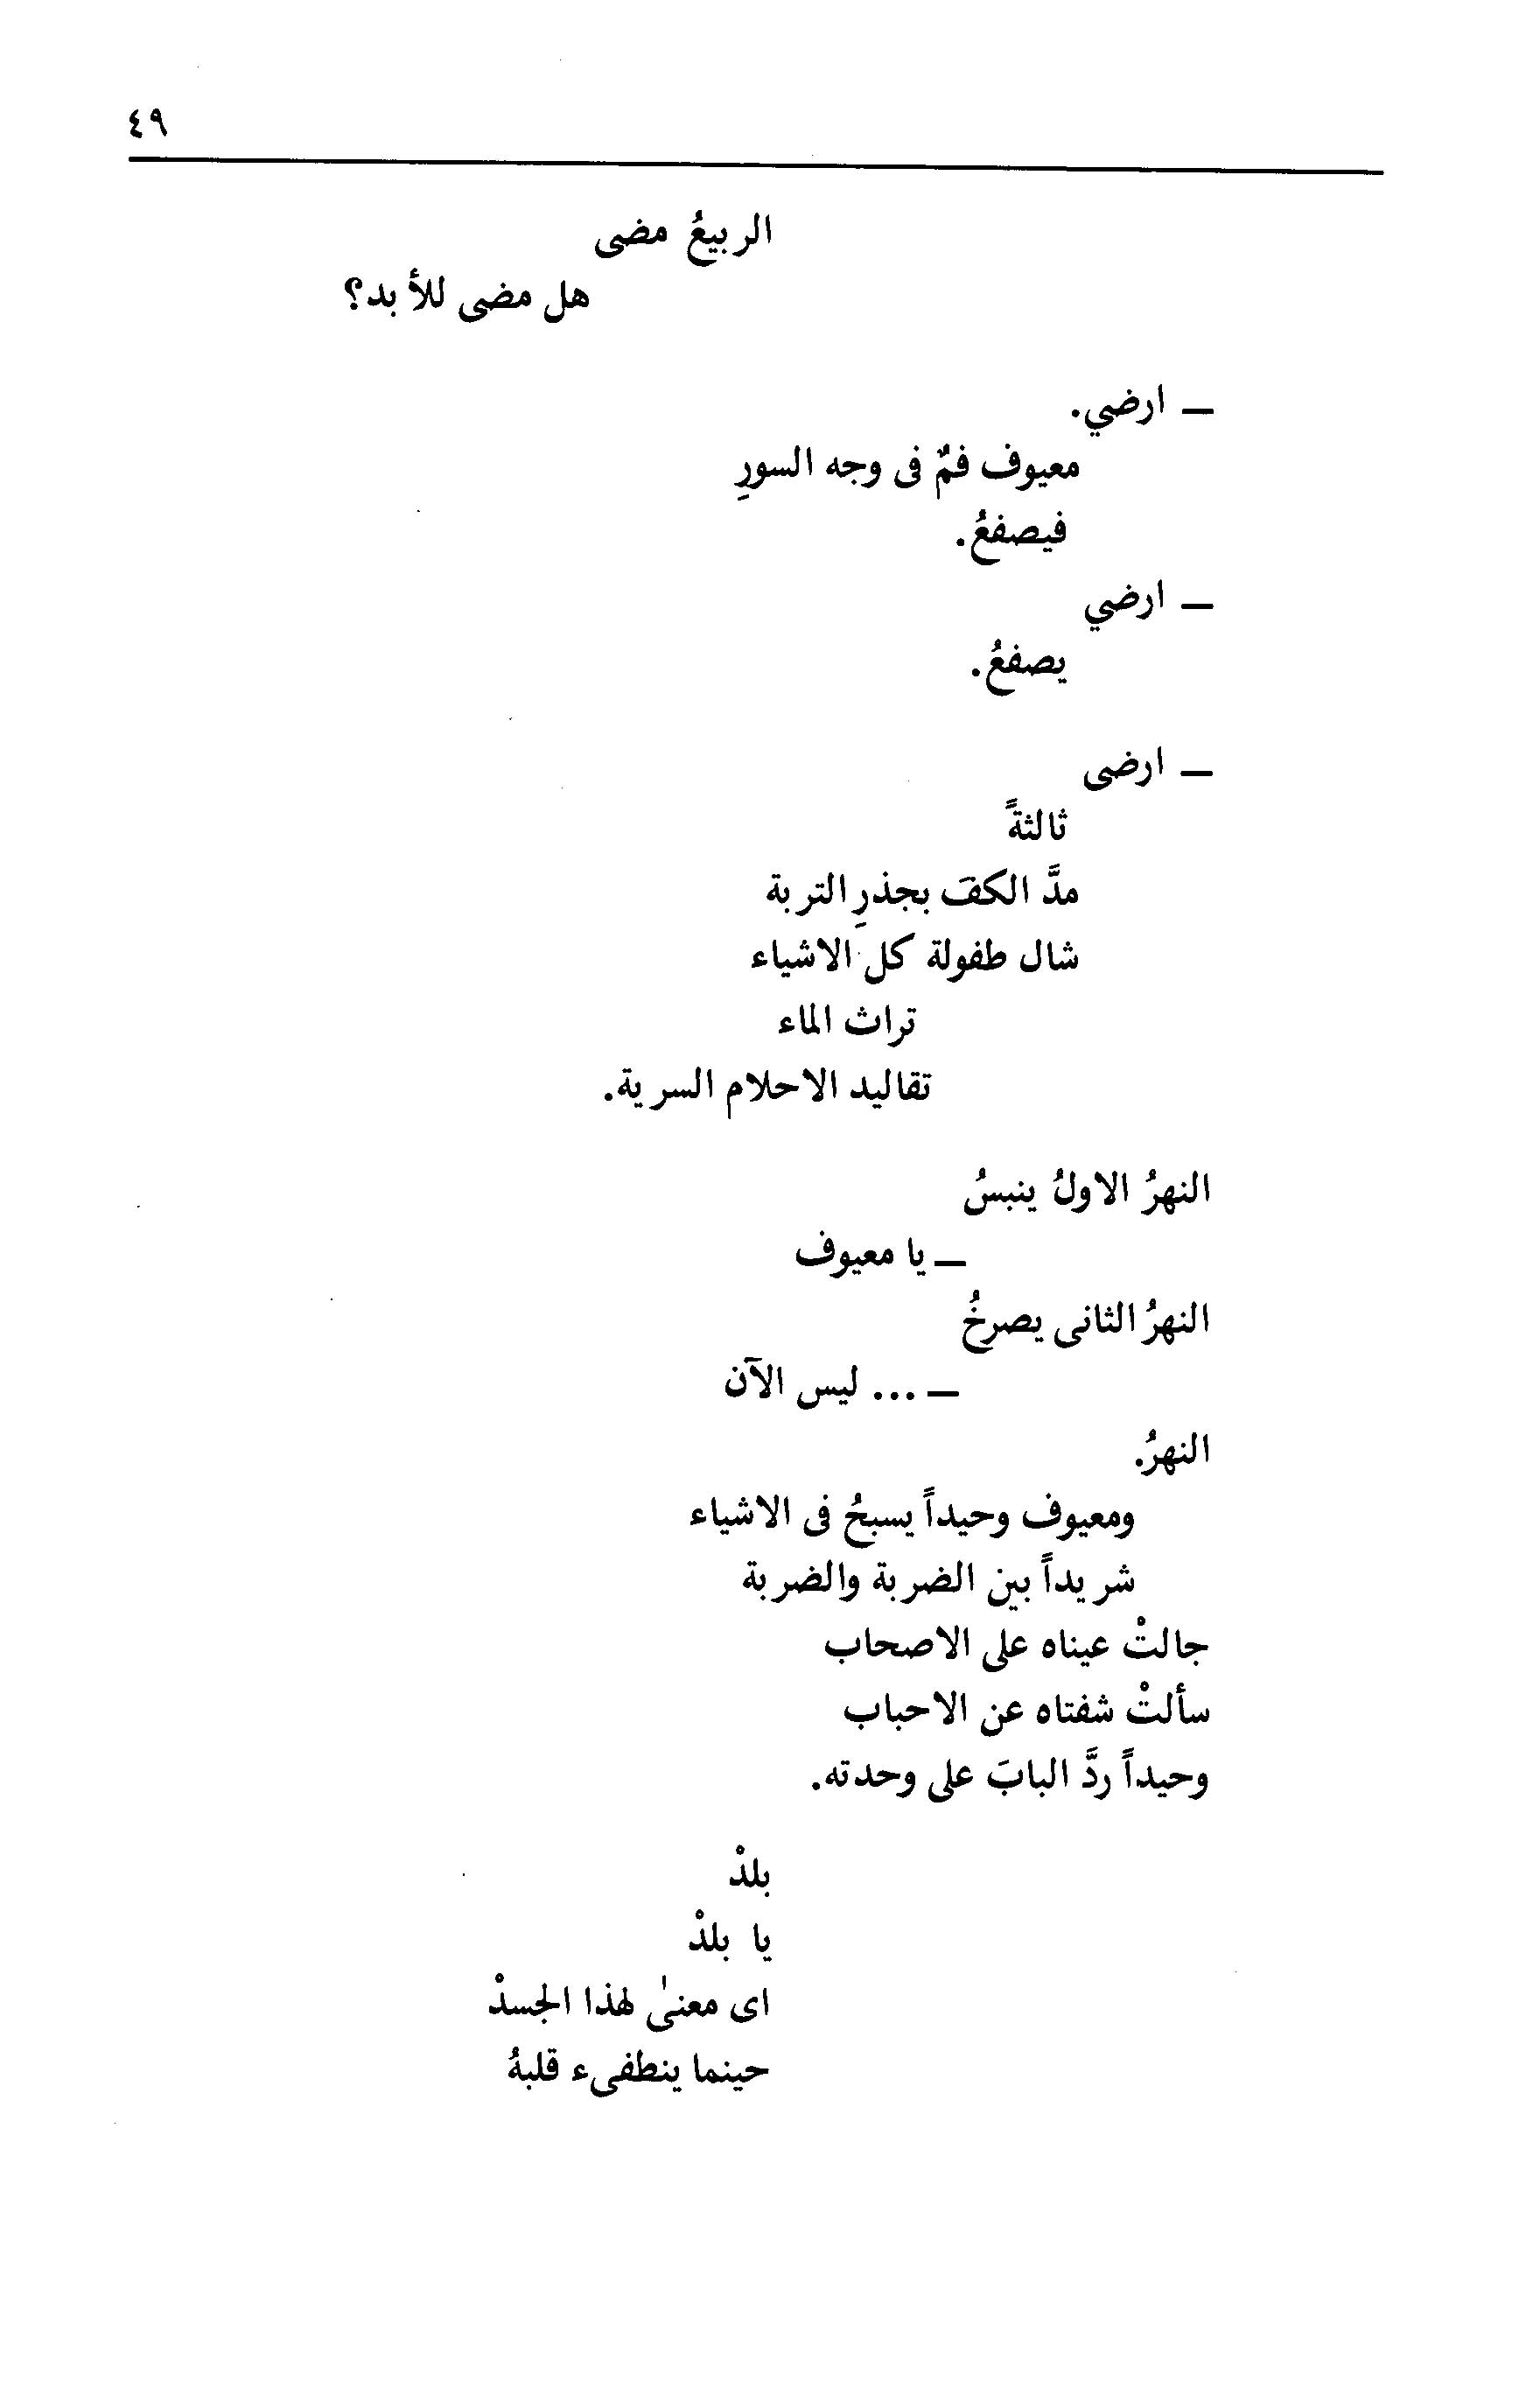 ٤٩
الربيعُ مضى
هل مضى للأبد؟
— ارضي.
معيوف فمٌ فى وجه السورِ
فيصفعُ.
— ارضي
يصفعُ.
— ارضى
ثالثةً
مدَّ الكفَ بجذرِ التربة
شال طفولة كل الاشياء
تراث الماء
تقاليد الاحلام السرية.
النهرُ الاولُ ينبسُ
— يا معيوف
النهرُ الثانى يصرخُ
— ... ليس الآن
النهرُ.
ومعيوف وحيداً يسبحُ فى الاشياء
شريداً بين الضربة والضربة
جالتْ عيناه على الاصحاب
سألتْ شفتاه عن الاحباب
وحيداً ردَّ البابَ على وحدته.
بلدْ
يا بلدْ
اى معنىٰ لهذا الجسدْ
حينما ينطفىء قلبهُ